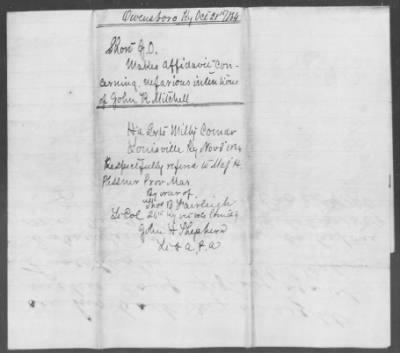 Owensboro Ky Oct 21st 1864
Short J. O.
Makes Affidavit con-
cerning nefarious intentions
of John R. Mitchell
Hd Qrts Milty Comdr
Louisville Ky Nov 1864
Respectfully referred to Maj H.
Plessner Prov. Mar
By order of
Thos B Fairleigh
Lt Col 26th Ky Comdg
John H Shepherd
Lt & a.